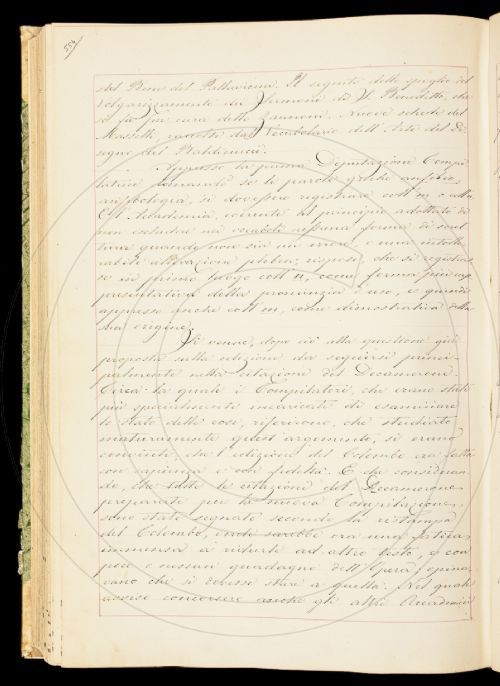 554
del Bene del Pallavicini. Il seguito dello spoglio del
Volgarizzamento dei Sermoni di S. Benedetto, che
si fa per cura dello Zannoni. Nuove schede del
Masselli, raccolte dal Vocabolario dell'Arte del Di-
segno del Baldinucci.
Appresso la prima Deputazione Compi-
latrice domandò se le parole greche anfora,
anfibologia, si dovessero registrare coll'm o alla
L'Accademia, coerente al principio adottato di
non escludere nei vocaboli nessuna forma di scrit-
tura quando non sia un errore, o una intolle-
rabile alterazione plebea; rispose che si registras-
se in primo luogo coll'n, come forma più rap-
presentativa della pronunzia e uso, e quindi
appresso anche coll'm, come dimostrativa della
sua origine.
Si venne, dopo ciò alla questione già
proposta sulla edizione da seguirsi princi-
palmente nella citazione del Decamerone.
Circa la quale i Compilatori, che erano stati
più specialmente incaricati di esaminare
lo stato delle cose, riferirono, che studiato
maturamente quest'argomento, si erano
convinti che l'edizione del Colombo era fatta
con sapienza e con fedeltà. E che consideran-
do, che tutte le citazioni del Decamerone
preparate per la nuova Compilazione,
sono state segnate secondo la ristampa
del Colombo, onde sarebbe ora una fatica
immensa a ridurle ad altro testo, e con
poco o nessun guadagno dell'Opera; opina-
vano che si dovesse stare a questa. Nel quale
avviso concorsero anche gli altri Accademici